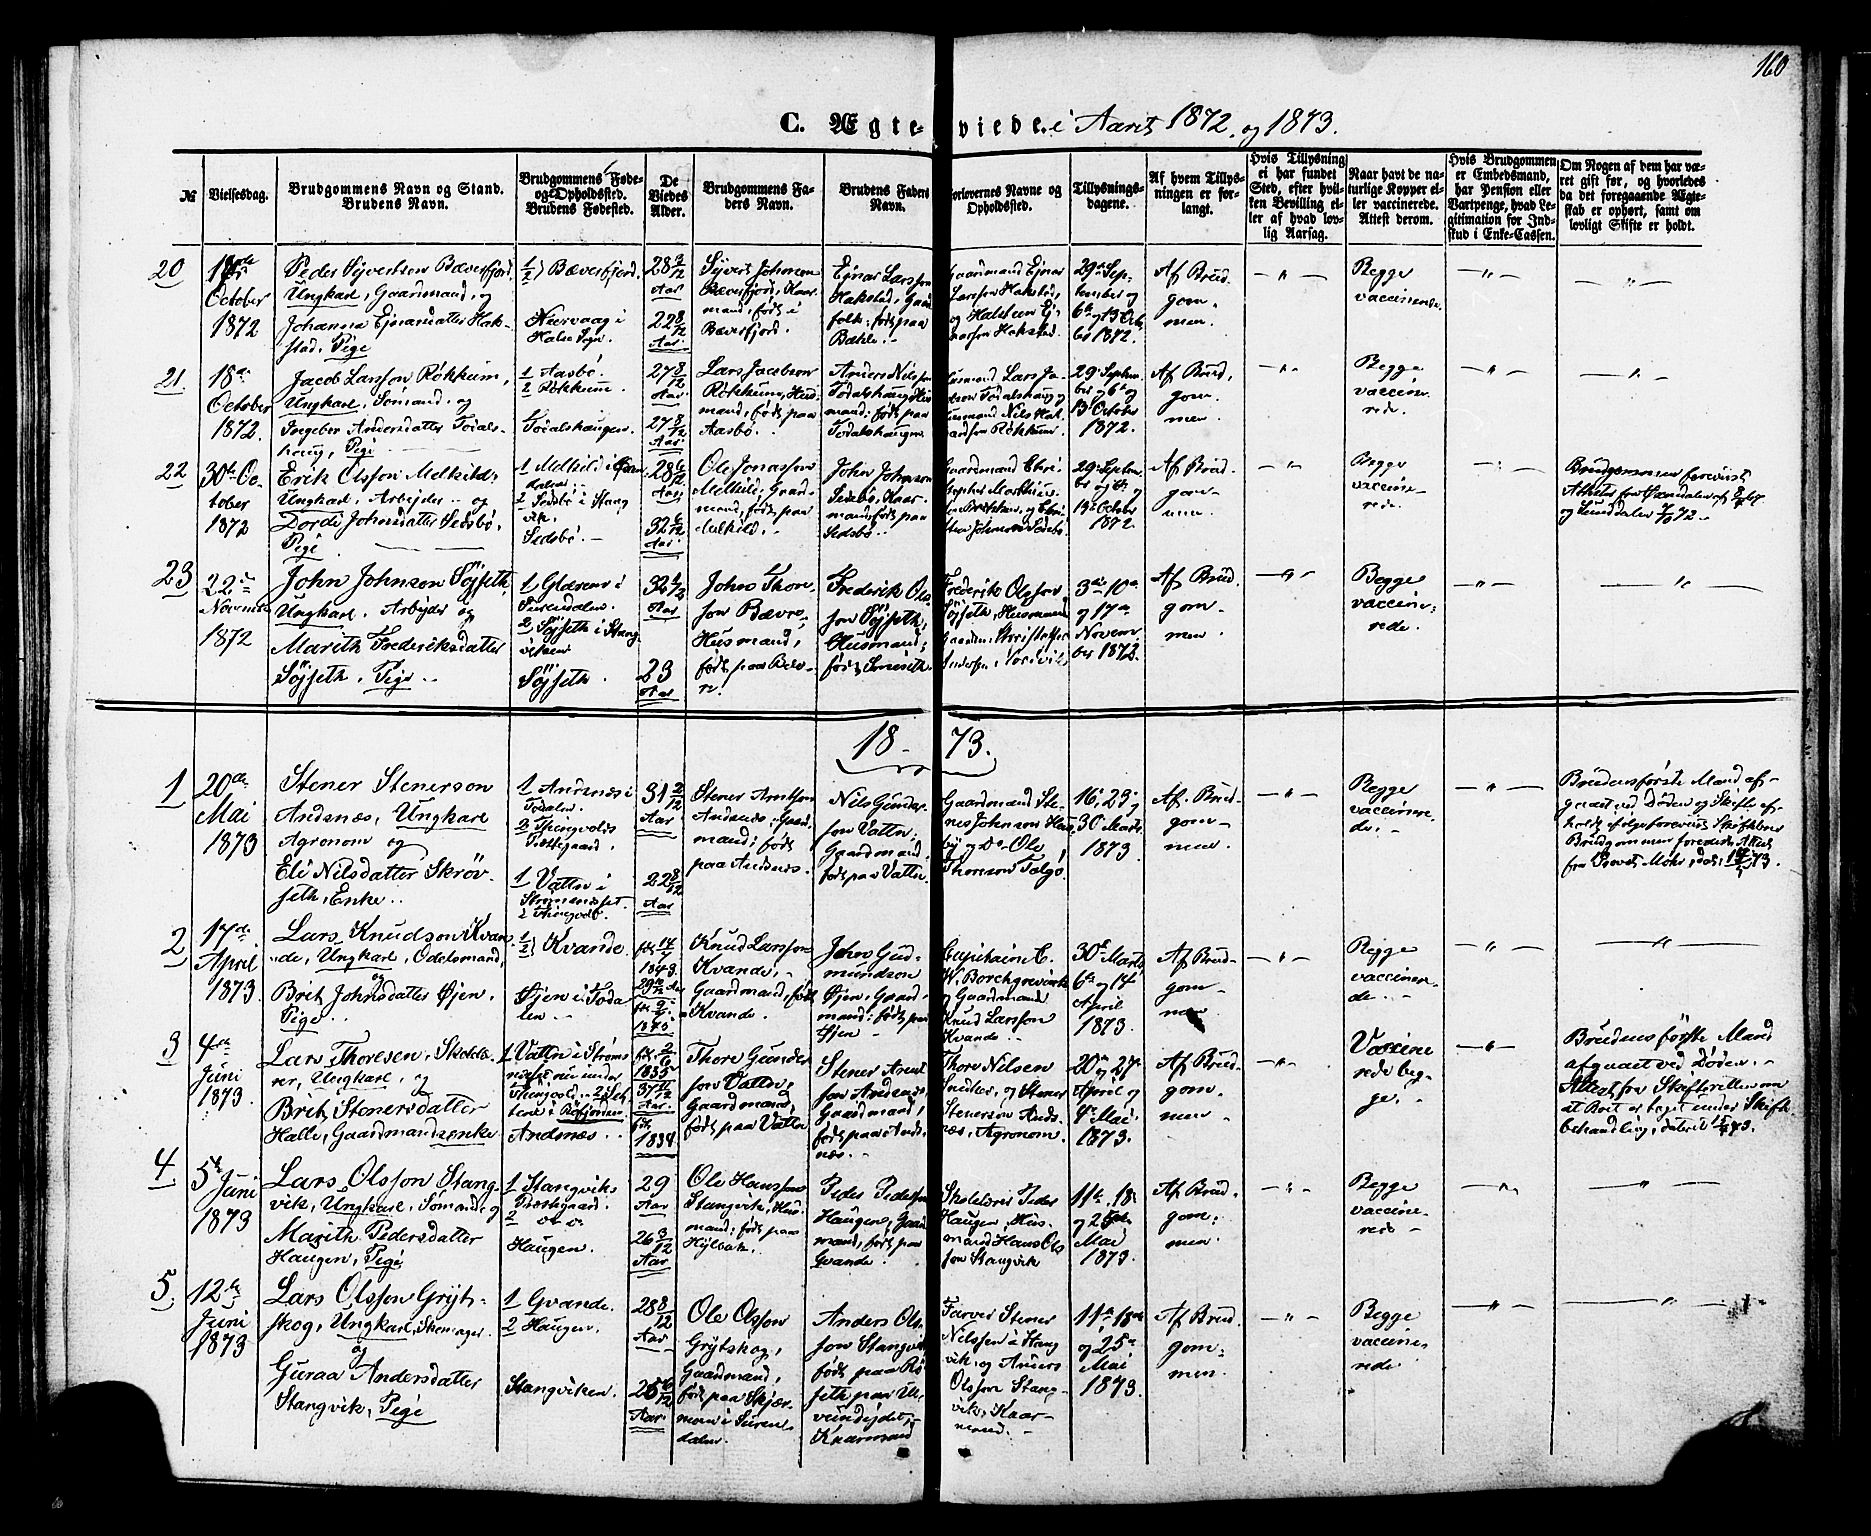 160
C. Ægteviede i Aaret 1872 og 1873.
№
Vielsesdag.
Brudgommens Navn og Stand.
Brudens Navn.
Brudgommens Føde-
og Opholdssted.
Brudens Fødested.
De
Viedes
Alder.
Brudgommens Fa-
ders Navn.
Brudens Faders
Navn.
Forlovernes Navne og
Opholdssted.
Tillysnings-
dagene.
Af hvem Tillys-
ningen er for-
langt.
Hvis Tillysning
ei har fundet
Sted, efter hvil-
ken Bevilling el-
ler af hvad lov-
lig Aarsag.
Naar havt de na-
turlige Kopper el-
ler vaccinerede.
Attest derom.
Hvis Brudgommen
er Embedsmand,
har Pension eller
Vartpenge, hvad Le-
gitimation for Ind-
skud i Enke-Cassen.
Om Nogen af dem har væ-
ret gift før, og hvorledes
da det foregaaende Ægte-
skab er ophørt, samt om
lovligt Skifte er holdt.
20
October
1872
Peder Syvertsen Bæverfjord,
Ungkarl, Gaardmand, og
Johanna Ejnarsdatter Hak-
stad, Pige
1/2 } Bæverfjord.
Halse Sogn.
28 9/12
Aar
22 8/12
Aar
Syvert Johnsen
Bæverfjord, Kaar-
mand, født i
Bæverfjord.
Ejnar Larsson
Hakstad, Gaard-
folk; født paa
Bæhle.
Gaardmand Ejnar
Larsson Hakstad,
og Halsten Ej-
narson Hakstad.
29de Sep-
tember og
6te og 13 Octo-
ber 1872.
Af Brud-
gom-
men.
—"—
Begge
vaccinerede.
—"—
—"—
21.
18de
October
1872.
Jacob Larsson Røkkum,
Ungkarl, Sømand, og
Ingeber Andersdatter Todals-
haug, Pige
1 Aasbö.
2 Røkkum.
Todalshaugen.
27 8/12
Aar
27 8/12
Aar
Lars Jacobsen
Røkkum, Hus-
mand, født paa
Aasbö.
Anders Nilsson
Todalshaug, Hus-
mand; født paa
Todalshaugen.
Husmand Lars Ja-
cobson Todalshaug og
Husmand Nils
Røkkum.
29 Septem-
ber og 6te og
13 October
1872.
Af Brud-
gom-
men
—"—
Begge
vaccine-
rede.
—"—
—"—
22
30te Oc-
tober
1872
Erik Olsson Melkild,
Ungkarl, Arbeyder og
Dordi Johnsdatter Sedsbö,
Pige
1 Melkild i
2 Sedsbö i Stang-
vik.
Sedsbö.
28 6/12
Aar
32 6/12
Aar
Ole Jonasson
Melkild, Gaard-
mand, født paa
Melkild.
John Johnson
Sedsbö, Kaar-
mand, født paa
Sedsbö.
Gaardmand Chri-
stopher
og Chri-
sten Johnson Sedsbö.
29 Septem-
ber og 6te og
13 October
1872.
Af Brud-
gom-
men.
—"—
Begge
vaccine-
rede.
—"—
Brudgommen forevist
Attester fra
og Sunddalen
23
22de
November
1872
John Johnson Söjseth,
Ungkarl, Arbeyder og
Marith Frederiksdatter
Söjseth, Pige
1 Glærem i
Surendalen.
2 Söjseth i Stang-
viken
Söjseth.
32 1/2
Aar
23
Aar
John Thore-
son Bævre,
Husmand,
født paa Bæv-
re.
Frederik Ols-
son Söjseth,
Husmand,
født
Frederik Olsson
Söjseth, Husmand,
3de 10de
og 17de
Novem-
ber 1872.
Af Brud-
gom-
men.
—"—
Begge
vaccine-
rede.
—"—
—"—
1873.
1
20de
Mai
1873
Stener Stenerson
Andsnæs, Ungkarl
Agronom og
Eli Nilsdatter Skröv-
seth, Enke
1 Andsnæs i
Todalen.
2 Thingvolds
Præstegaard.
1 Vattn i
Strømsneset.
2 Thingvold.
31 2/12
Aar
22 8/12
Aar
Stener Arntson
Andsnæs; Gaard-
mand; født
paa Andsnæs.
Nils Gunder-
son Vattn;
Gaardmand
født paa Vattn.
Gaardmand Ste-
ner Johnson Hus-
by og Do Ole
Thoresen Talgö.
16; 23; og
30 Marts
1873.
Af Brud-
gom-
men.
—"—
Begge
vaccinere-
de.
—"—
Brudens første Mand af-
gaaet ved Døden og Skifte af-
holdt ifølge forevist
Brudgommen forevist Attest
fra Provst
2
17de
April
1873
Lars Knudson Kvan-
de, Ungkarl, Odelsmand,
og
Brit Johnsdatter Øjen.
Pige
1/2 } Kvande.
Øjen i Toda-
len
1843.
Knud Larsson
Kvande,
Gaardmand, født
Kvande.
John Gud-
mundson
Øjen, Gaard-
mand; født paa
Øjen
Capitaine C.
W. Borchgrevink
og Gaardmand
Knud Larsson
Kvande
30te Marts
6te og 14
April
1873.
Af Brud-
gom-
men
—"—
Begge
vaccinere-
de.
—"—
—"—
3
4de
Juni
1873.
Lars Thoresen,
Ungkarl, og
Brit Stenersdatter
Halle, Gaardmandsenke
1 Vattn i Strøms-
Andsnæs.
1835
Aar
1834
Thore Gunder-
son Vattn,
Gaardmand,
født paa Vattn
Stener Arnt-
son Andsnæs,
Gaardmand,
født paa Ands-
næs.
Thore Nilsen
Snekker, og Stener
Stenerson Ands-
næs, Agronom.
20de og 27de
April og
4de Mai
1873.
Af Brud-
gom-
men
—"—
Vaccine-
rede beg-
ge.
—"—
Brudens første Mand
afgaaet ved Døden.
Attest fra Skifteretten om
at Boet er taget under Skifte-
behandling, dateret
4
5te Juni
1873
Lars Olsson Stang-
vik, Ungkarl, Sømand, og
Marith Pedersdatter
Haugen, Pige
1 Stangviks
Præstegaard.
2 do do
Haugen.
29
Aar
26 3/12
Aar
Ole Hansson
Stangvik, Hus-
mand; født paa
Hylbak.
Peder Pederson
Haugen, Gaard-
mand, født paa
Gvande.
Skolelærer Peder
Haugen, Hus-
mand Hans Ols-
son Stangvik
11te, 18
og 25de
Mai
1873.
Af Brud-
gom-
men.
—"—
Begge
vaccine-
rede
—"—
—"—
5.
12te
Juni
1873
Lars Olsson Gryts-
skog, Ungkarl, Skomager
og
Guraa Andersdatter
Stangvik, Pige
1 Gvande.
2 Haugen.
Stangviken.
28 8/12
Aar
25 6/12
Aar
Ole Olsson
Grytskog,
Gaardmand,
født paa Skjær-
moen i Suren-
dalen
Anders Ols-
son Stangvik
født paa Rö-
seth paa
Kaarmand
Farver Stener
Nilssen i Stang-
vik, og Anders
Olsson Stang-
vik, Kaar-
mand.
11te 18de
og 25de
Mai
1873.
Af Brud-
gom-
men.
—"—
Begge
vaccine-
rede.
—"—
—"—